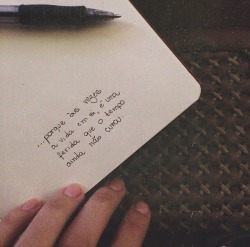 ...porque às vezes
a vida em si, é uma
ferida que o tempo
ainda não curou.